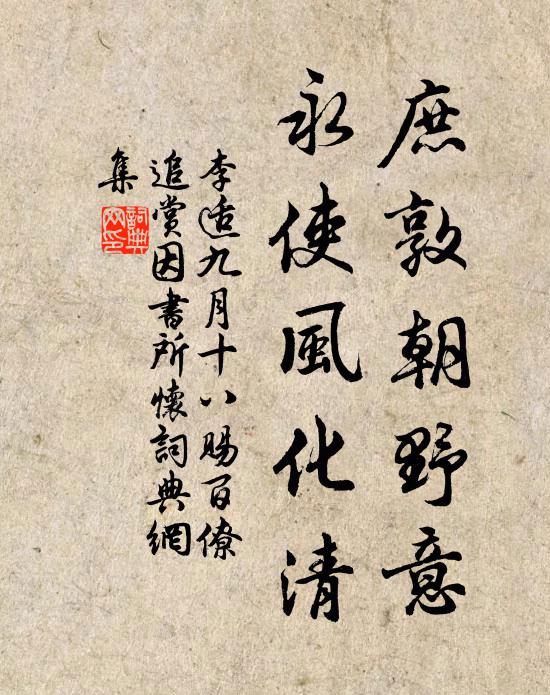 庶敦朝野意
永使風化清
李适九月十八賜百僚
追賞因書所懷詞典網
集
詞典
网印